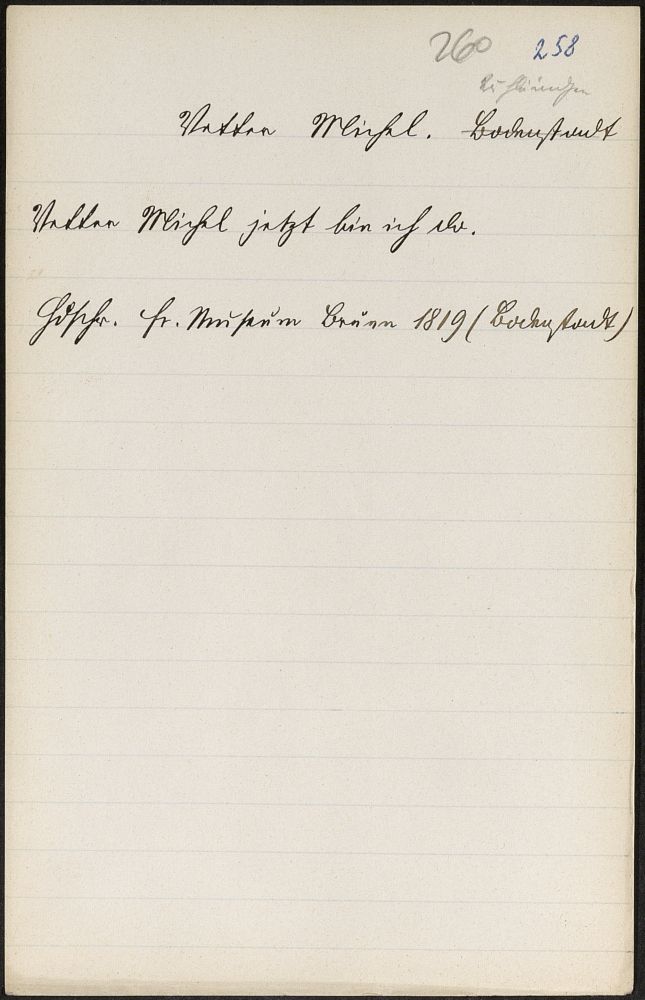 260 258
Vetter Michel. Bodenstadt
Vetter Michel jetzt bin ich da.
Hdschr. Fr. Museum Brünn 1819 (Bodenstadt)